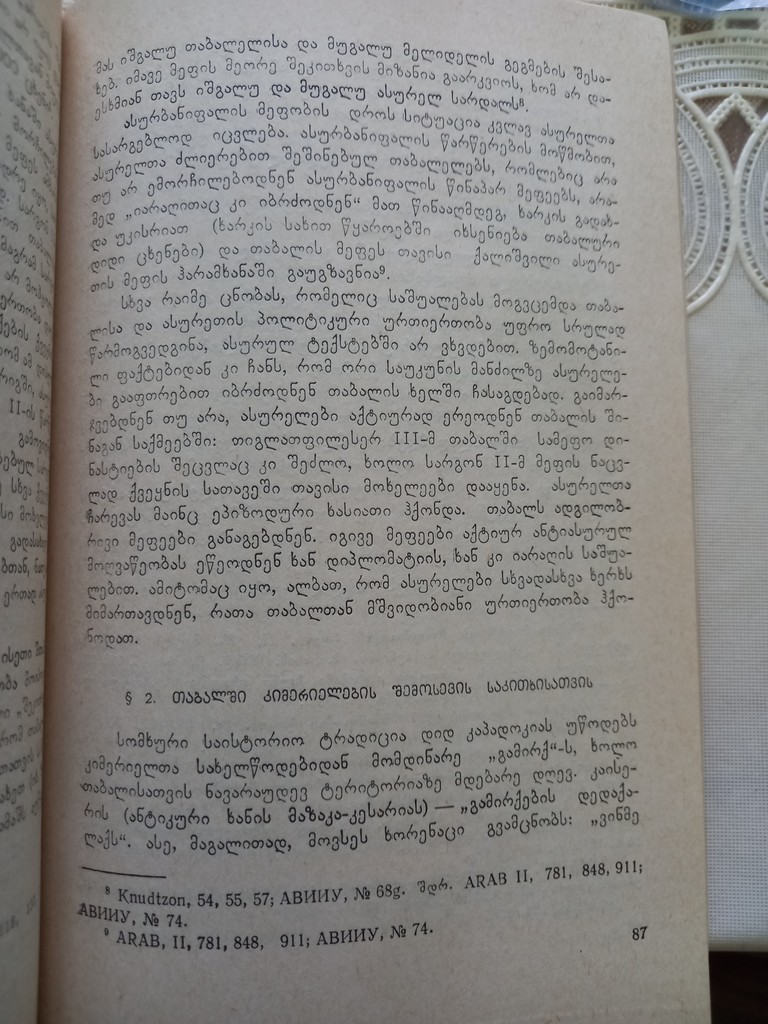 მას იშგალუ თაბალელისა და მუგალუ მელიდელის გეგმების შესა-
ხებ. იმავე მეფის მეორე შეკითხვის მიზანია გაარკვიოს, ხომ არ და-
ესხმიან თავს იშგალუ და მუგალუ ასურელ სარდალს⁸.
ასურბანიფალის მეფობის დროს სიტუაცია კვლავ ასურელთა
სასარგებლოდ იცვლება. ასურბანიფალის წარწერების მოწმობით,
ასურელთა ძლიერებით შეშინებულ თაბალელებს, რომლებიც არა
თუ არ ემორჩილებოდნენ ასურბანიფალის წინაპარ მეფეებს, არა-
მედ „იარაღითაც კი იბრძოდნენ“ მათ წინააღმდეგ, ხარკის გადახ-
და უკისრიათ (ხარკის სახით წყაროებში იხსენიება თაბალური
დიდი ცხენები) და თაბალის მეფეს თავისი ქალიშვილი ასურე-
თის მეფის ჰარამხანაში გაუგზავნია⁹.
სხვა რაიმე ცნობას, რომელიც საშუალებას მოგვცემდა თაბა-
ლისა და ასურეთის პოლიტიკური ურთიერთობა უფრო სრულად
წარმოგვედგინა, ასურულ ტექსტებში არ ვხვდებით. ზემომოტანი-
ლი ფაქტებიდან კი ჩანს, რომ ორი საუკუნის მანძილზე ასურელე-
ბი გააფთრებით იბრძოდნენ თაბალის ხელში ჩასაგდებად. გაიმარ-
ჯვებდნენ თუ არა, ასურელები აქტიურად ერეოდნენ თაბალის ში-
ნაგან საქმეებში: თიგლათფილესერ III-მ თაბალში სამეფო დი-
ნასტიების შეცვლაც კი შეძლო, ხოლო სარგონ II-მ მეფის ნაცვ-
ლად ქვეყნის სათავეში თავისი მოხელეები დააყენა. ასურელთა
ჩარევას მაინც ეპიზოდური ხასიათი ჰქონდა. თაბალს ადგილობ-
რივი მეფეები განაგებდნენ. იგივე მეფეები აქტიურ ანტიასურულ
მოღვაწეობას ეწეოდნენ ხან დიპლომატიის, ხან კი იარაღის საშუა-
ლებით. ამიტომაც იყო, ალბათ, რომ ასურელები სხვადასხვა ხერხს
მიმართავდნენ, რათა თაბალთან მშვიდობიანი ურთიერთობა ჰქო-
ნოდათ.
§ 2. თაბალში კიმერიელების შემოსევის საკითხისათვის
სომხური საისტორიო ტრადიცია დიდ კაპადოკიას უწოდებს
კიმერიელთა სახელწოდებიდან მომდინარე „გამირქ“-ს, ხოლო
თაბალისათვის ნავარაუდევ ტერიტორიაზე მდებარე დღევ. კაისე-
რის (ანტიკური ხანის მაზაკა-კესარიას) — „გამირქების დედაქა-
ლაქს“. ასე, მაგალითად, მოვსეს ხორენაცი გვამცნობს: „ვინმე
⁸ Knudtzon, 54, 55, 57; АВИИУ, № 68g. შდრ. ARAB II, 781, 848, 911;
АВИИУ, № 74.
⁹ ARAB, II, 781, 848, 911; АВИИУ, № 74.
87